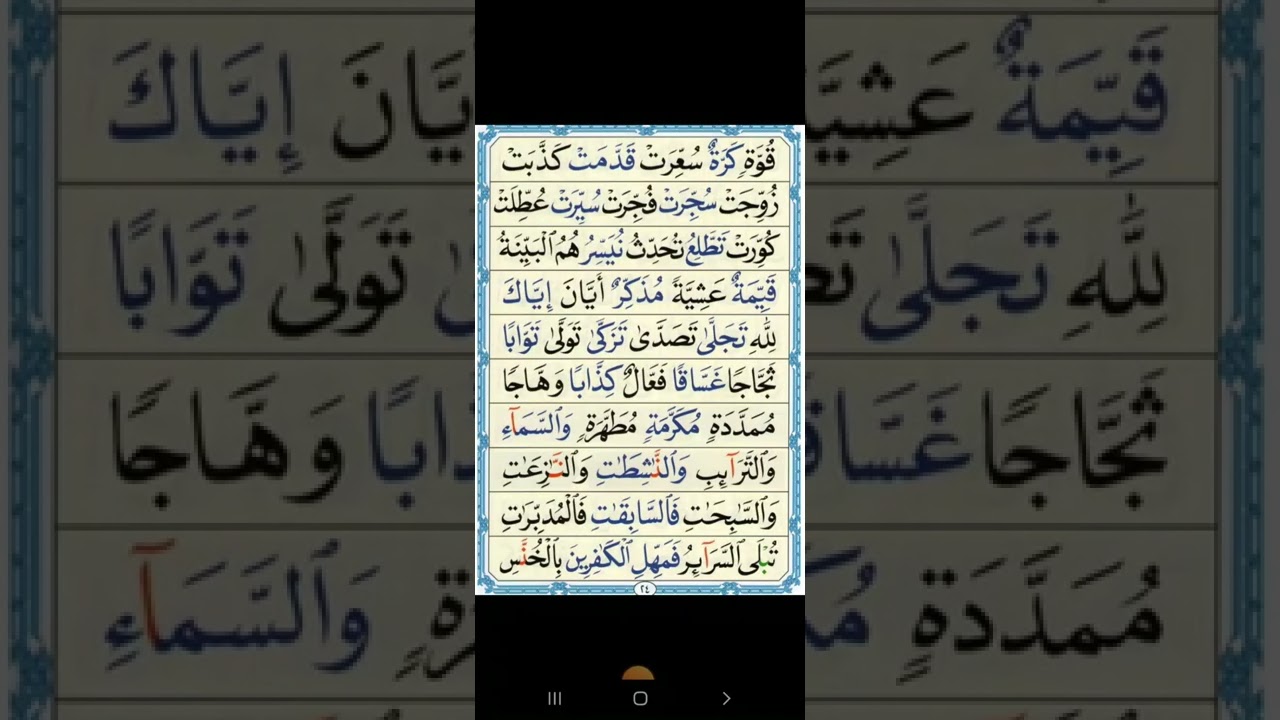 قُوَّةٍ كَرَّةٌ سُعِّرَتْ قَدَّمَتْ كَذَّبَتْ
زُوِّجَتْ سُجِّرَتْ فُجِّرَتْ سُيِّرَتْ عُطِّلَتْ
كُوِّرَتْ تَطَّلِعُ تُحَدِّثُ نُيَسِّرُ هُمُ الْبَيِّنَةُ
قَيِّمَةٌ عَشِيَّةً مُذَكِّرٌ أَيَّانَ إِيَّاكَ
لِلّٰهِ تَجَلّٰى تَصَدّٰى تَزَكّٰى تَوَلّٰى تَوَّابًا
ثَجَّاجًا غَسَّاقًا فَعَّالٌ كِذَّابًا وَهَّاجًا
مُمَدَّدَةٍ مُكَرَّمَةٍ مُطَهَّرَةٍ وَالسَّمَآءِ
وَالتَّرَآئِبِ وَالنّٰشِطٰتِ وَالنّٰزِعٰتِ
وَالسّٰبِحٰتِ فَالسّٰبِقٰتِ فَالْمُدَبِّرٰتِ
تُبْلَى السَّرَآئِرُ فَمَهِّلِ الْكٰفِرِينَ بِالْخُنَّسِ
٢٤